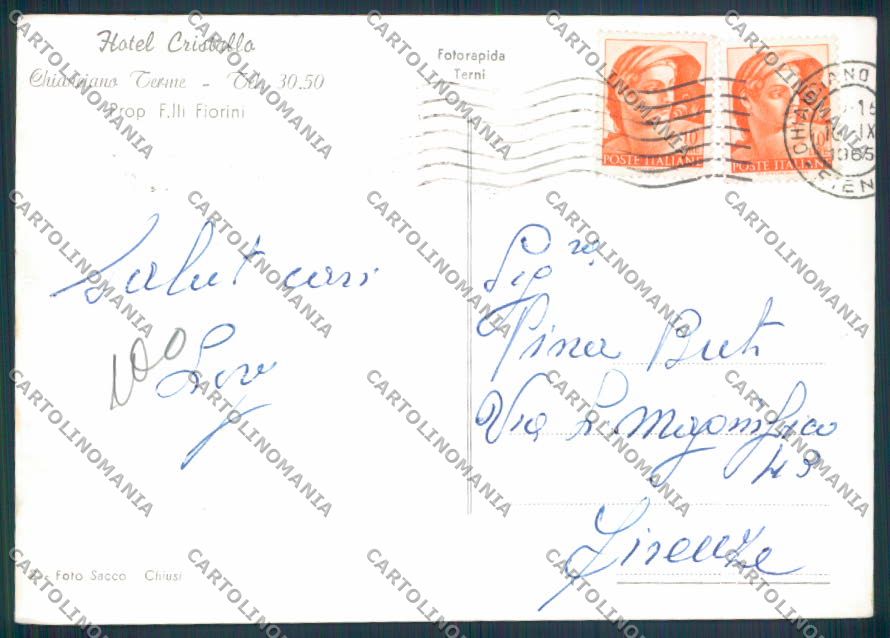 Hotel Cristallo
Chianciano Terme - Tel. 30.50
Prop F.lli Fiorini
Fotorapida
Terni
10
POSTE ITALIANE
10
POSTE ITALIANE
CHIANCIANO
IX
1965
SIENA
Saluti cari
100
Sig.ra
Pina Buti
Via L. Magnifico
43
Firenze
Foto Sacco Chiusi
CARTOLINOMANIA